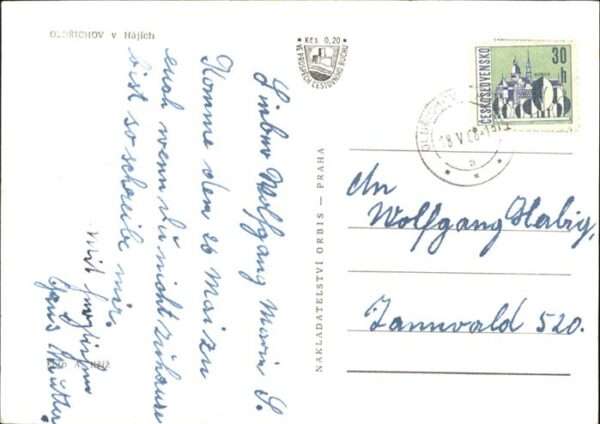 OLDŘICHOV v Hájích
★ KčS 0,20 ★
VE PROSPĚCH CESTOVNÍHO RUCHU
ČESKOSLOVENSKO
30
h
OLDŘICHOV
18 V 68
Lieber Wolfgang
Komme den 26 Mai zu
euch wenn du nicht zuhause
bist so schreibe mir.
mit
Hans
NAKLADATELSTVÍ ORBIS — PRAHA
An
Wolfgang Habig,
Tannwald 520.